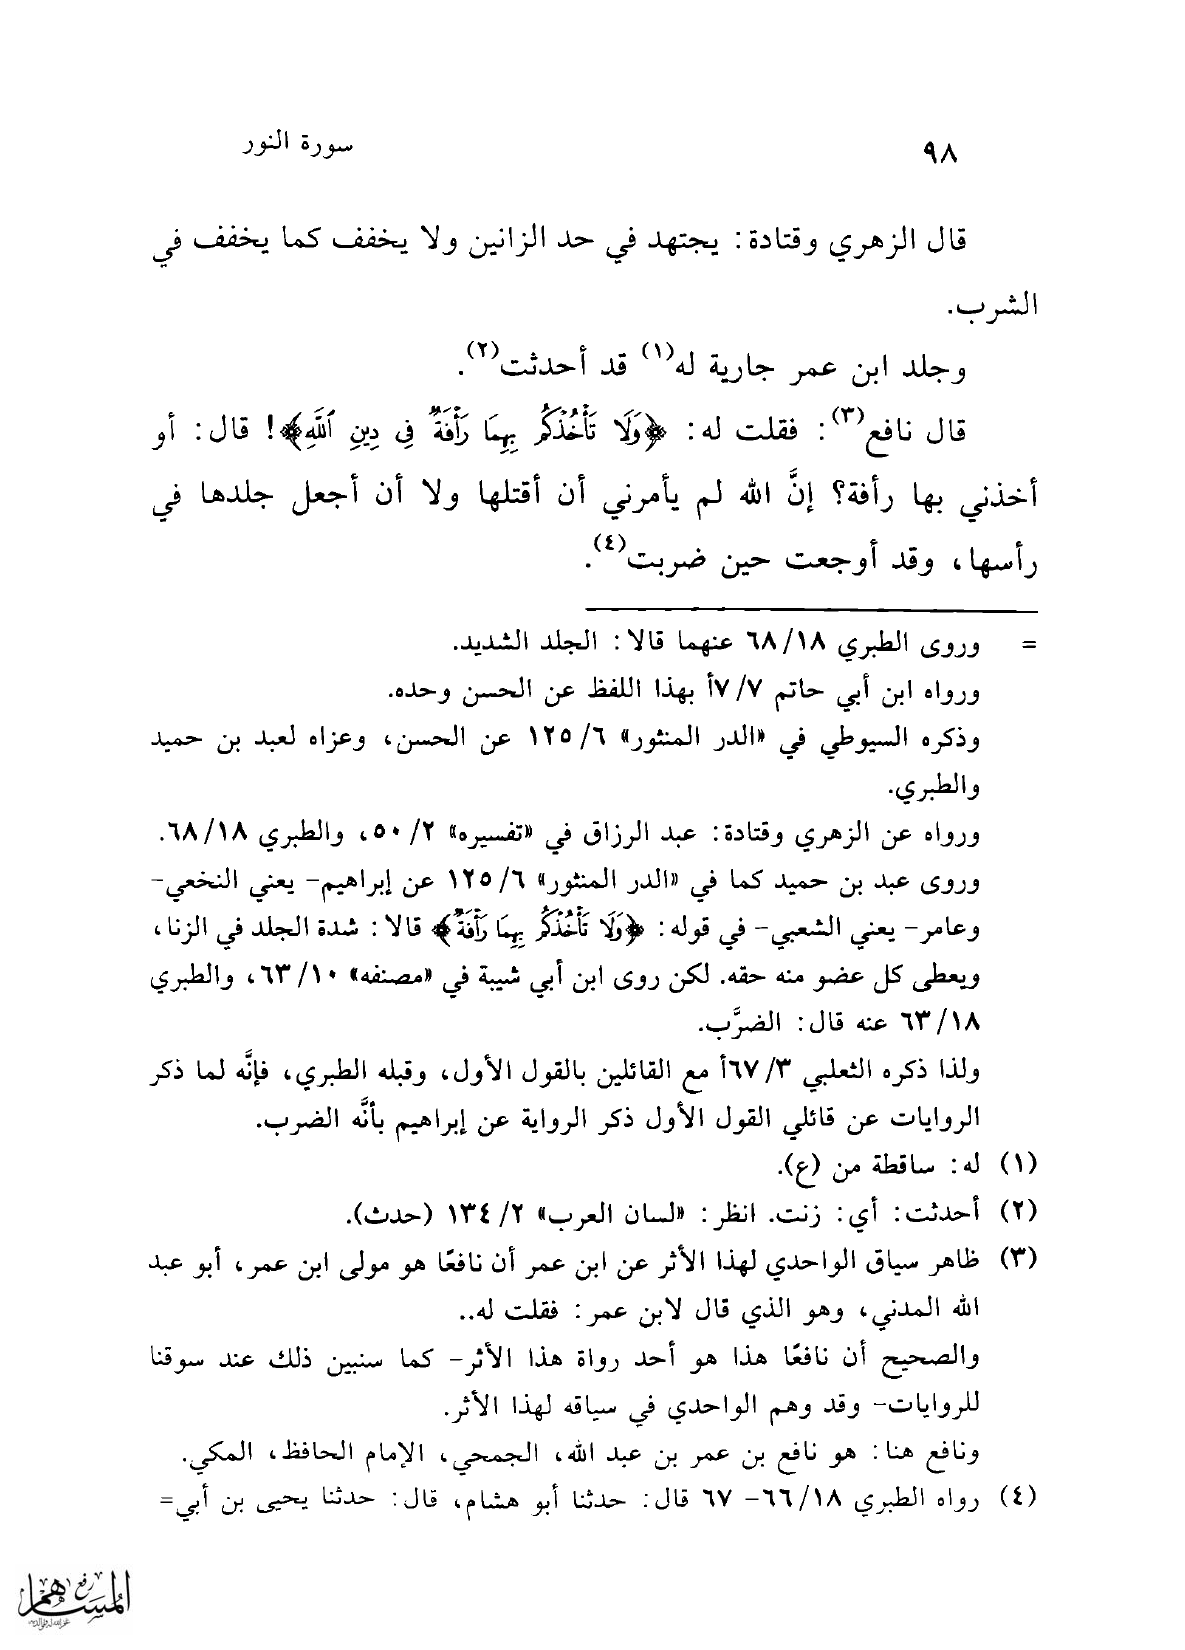 ٩٨ سورة النور
قال الزهري وقتادة: يجتهد في حد الزانين ولا يخفف كما يخفف في
الشرب.
وجلد ابن عمر جارية له(١) قد أحدثت(٢).
قال نافع(٣): فقلت له: ﴿وَلَا تَأْخُذْكُم بِهِمَا رَأْفَةٌ فِي دِينِ ٱللَّهِ﴾! قال: أو
أخذني بها رأفة؟ إنَّ الله لم يأمرني أن أقتلها ولا أن أجعل جلدها في
رأسها، وقد أوجعت حين ضربت(٤).
= وروى الطبري ١٨/ ٦٨ عنهما قالا: الجلد الشديد.
ورواه ابن أبي حاتم ٧/ ٧أ بهذا اللفظ عن الحسن وحده.
وذكره السيوطي في «الدر المنثور» ٦/ ١٢٥ عن الحسن، وعزاه لعبد بن حميد
والطبري.
ورواه عن الزهري وقتادة: عبد الرزاق في «تفسيره» ٢/ ٥٠، والطبري ١٨/ ٦٨.
وروى عبد بن حميد كما في «الدر المنثور» ٦/ ١٢٥ عن إبراهيم- يعني النخعي-
وعامر- يعني الشعبي- في قوله: ﴿وَلَا تَأْخُذْكُم بِهِمَا رَأْفَةٌ﴾ قالا: شدة الجلد في الزنا،
ويعطى كل عضو منه حقه. لكن روى ابن أبي شيبة في «مصنفه» ١٠/ ٦٣، والطبري
١٨/ ٦٣ عنه قال: الضرَّب.
ولذا ذكره الثعلبي ٣/ ٦٧أ مع القائلين بالقول الأول، وقبله الطبري، فإنَّه لما ذكر
الروايات عن قائلي القول الأول ذكر الرواية عن إبراهيم بأنَّه الضرب.
(١) له: ساقطة من (ع).
(٢) أحدثت: أي: زنت. انظر: «لسان العرب» ٢/ ١٣٤ (حدث).
(٣) ظاهر سياق الواحدي لهذا الأثر عن ابن عمر أن نافعًا هو مولى ابن عمر، أبو عبد
الله المدني، وهو الذي قال لابن عمر: فقلت له..
والصحيح أن نافعًا هذا هو أحد رواة هذا الأثر- كما سنبين ذلك عند سوقنا
للروايات- وقد وهم الواحدي في سياقه لهذا الأثر.
ونافع هنا: هو نافع بن عمر بن عبد الله، الجمحي، الإمام الحافظ، المكي.
(٤) رواه الطبري ١٨/ ٦٦- ٦٧ قال: حدثنا أبو هشام، قال: حدثنا يحيى بن أبي=